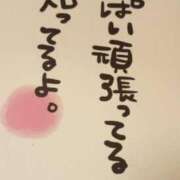 ぱい頑張ってる
知ってるよ。